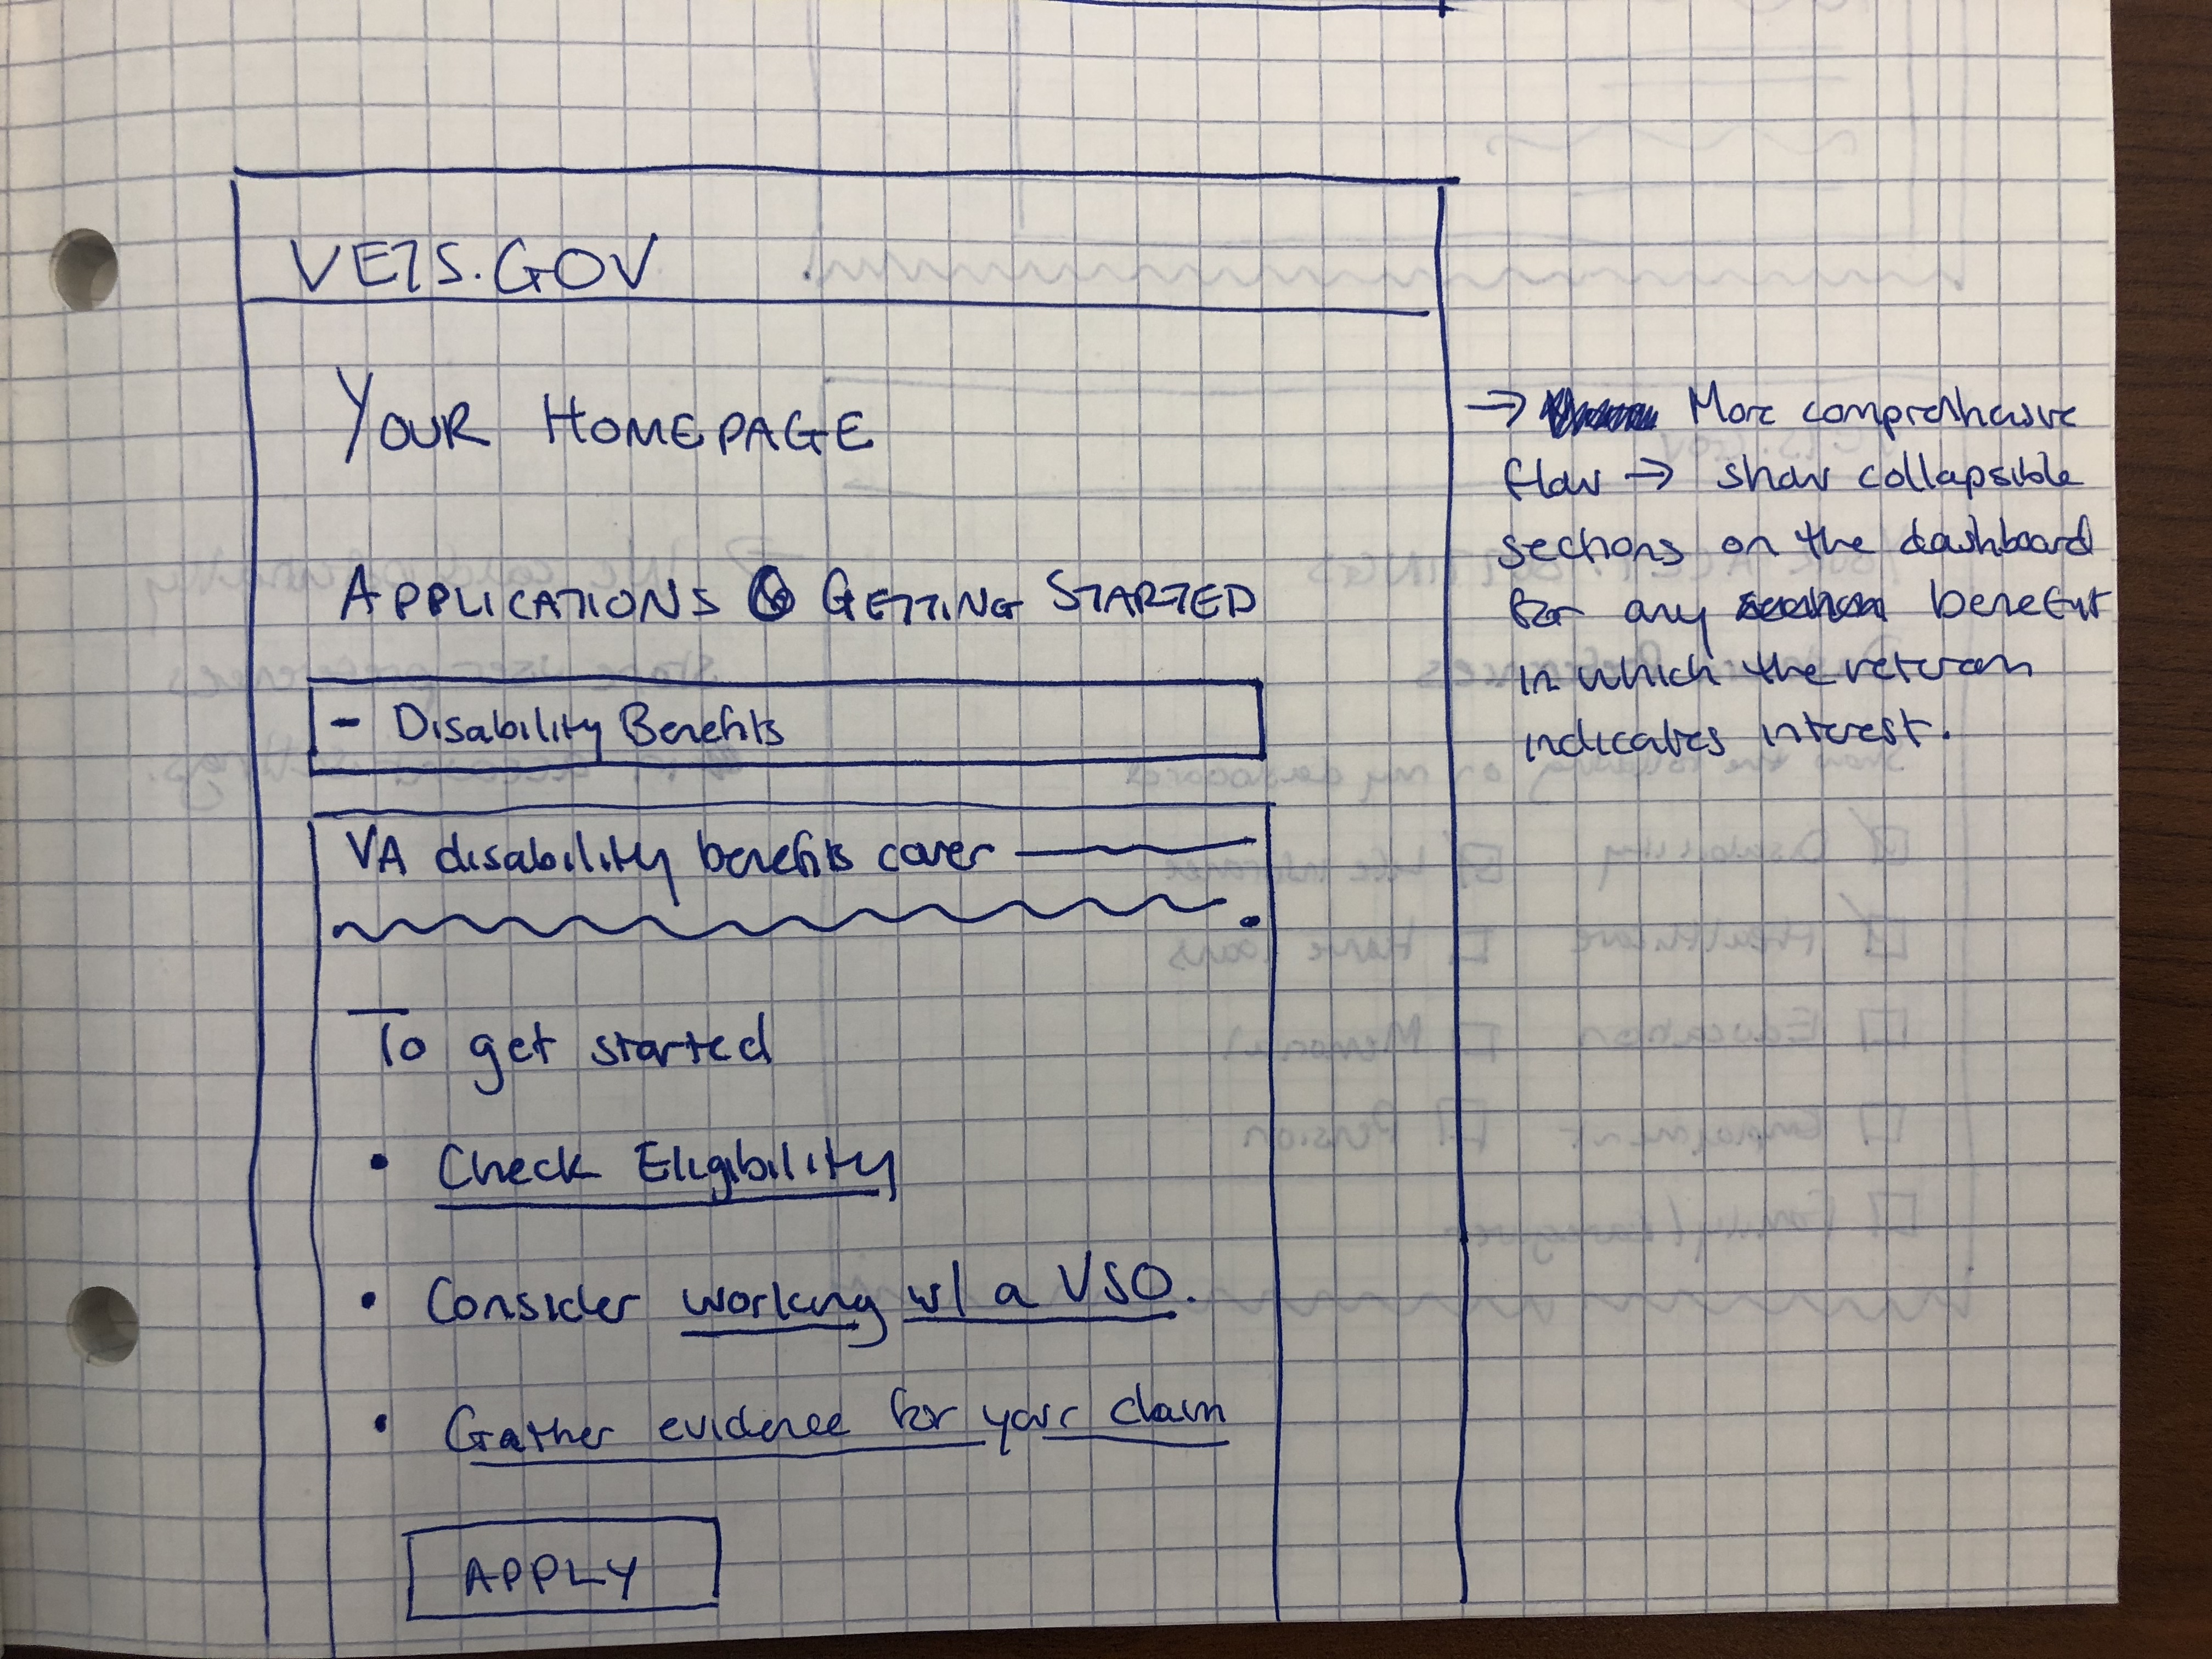 VETS.GOV
YOUR HOMEPAGE
APPLICATIONS & GETTING STARTED
- Disability Benefits
VA disability benefits cover
To get started
• Check Eligibility
• Consider working w/ a VSO.
• Gather evidence for your claim
APPLY
→ More comprehensive
flow → show collapsible
sections on the dashboard
for any benefit
in which the veteran
indicates interest.